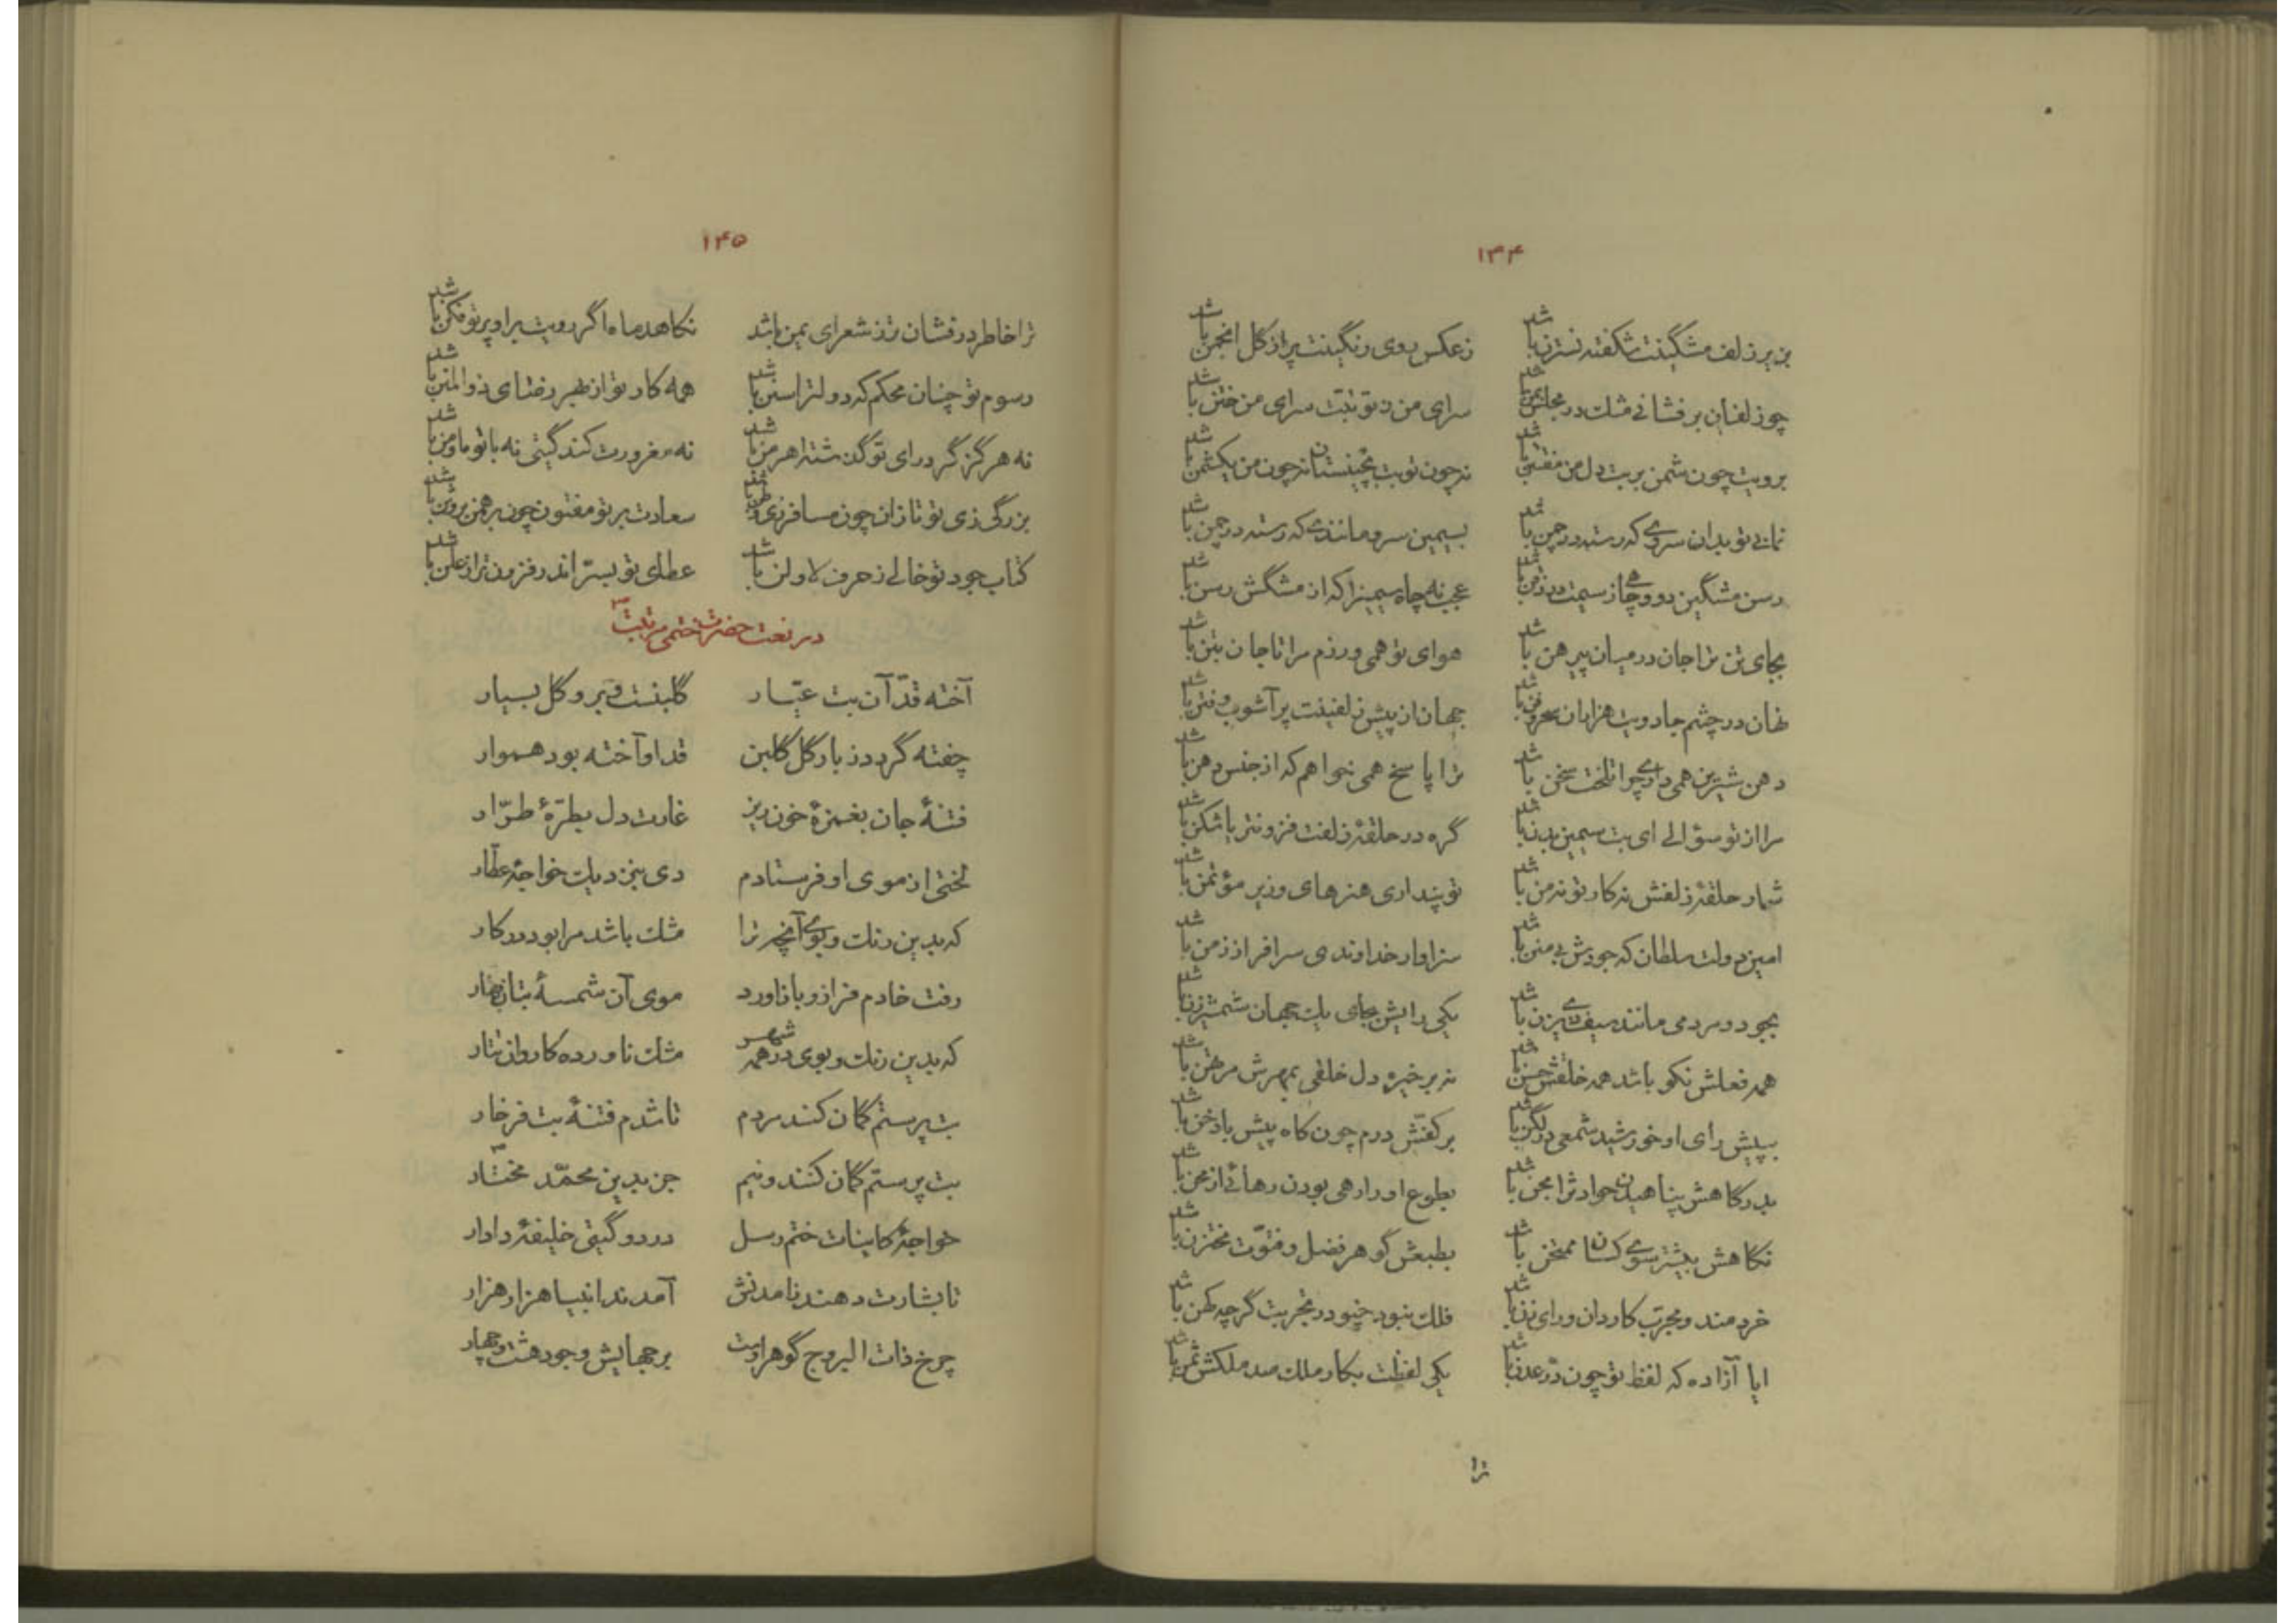 ۱۴۴
بزیر زلف مشگینت شکفته نسترن باشد زعکس روی رنگینت پر از گل انجمن باشد
چو زلفان برفشانی مشک در مجلس سرای من ز تو تبّت سرای من ختن باشد
برویت چون شمن بر بت دل من مفتتن باشد نه چون تو بت بچینستان نه چون من یک شمن باشد
نمانی تو بدان سروی که رسته در چمن باشد بسیمین سرو مانندی که رسته در چمن باشد
رسن مشگین دو و چاهی از سیمت در ذقن باشد عجب نه چاه سیمینرا که از مشگش رسن باشد
بجای تن ترا جان در میان پیرهن باشد هوای تو همی ورزم مرا تا جان بتن باشد
نهان در چشم جادویت هزاران سحر و فن باشد جهان از پیش زلفینت پر آشوب و فتن باشد
دهن شیرین همی داری چرا تلخت سخن باشد ترا پاسخ همی خواهم که از جنس دهن باشد
مرا از تو سؤالی ای بت سیمین بدن باشد گره در حلقهٔ زلفت فزونتر یا شکن باشد
شمار حلقهٔ زلفش نه کار تو نه من باشد تو پنداری هنرهای وزیر مؤتمن باشد
امین دولت سلطان که جودش بی منن باشد سزاوار خداوندی سرافراز زمن باشد
بجود و مردمی مانند سیف ذی یزن باشد یکی رایش بجای یک جهان شمشیرزن باشد
همه فعلش نکو باشد همه خلقش حسن باشد نه بر خیره دل خلقی بمهرش مرتهن باشد
بپیش رای او خورشید شمعی در لگن باشد بر کفّش درم چون کاه پیش بادخن باشد
بدرگاهش پناهیدن حوادثرا مجن باشد بطوع او را رهی بودن رهائی از محن باشد
نگاهش بیشتر سوی کسان ممتحن باشد بطبعش گوهر فضل و فتوّت مختزن باشد
خردمند و مجرّب کاردان و رای زن باشد فلک نبود چنو در تجربت گرچه کهن باشد
ایا آزاده که لفظ تو چون درّ عدن باشد یکی لفظت بکار ملک صد ملکش ثمن باشد
ترا
۱۴۵
ترا خاطر درفشان تر ز شعرای یمن باشد نکاهد ماه اگر رویت بر او پرتو فکن باشد
رسوم تو چنان محکم که دولترا سنن باشد همه کار تو از طیر رفتای ذو المنن باشد
نه هرگز گرد رای تو گذشته اهرمن باشد نه مغرورت کند گیتی نه با تو ما و من باشد
بزرگی زی تو تازان چون مسافر زی وطن باشد سعادت بر تو مفتون چون برهمن بر وثن باشد
کتاب جود تو خالی ز حرف لا و لن باشد عطای تو بسرّ اندر فزون تر از علن باشد
در نعت حضرت ختمی مرتبت ص
آخته قدّ آن بت عیّار گلبنست و بر و گل بسیار
چفته گردد ز بار گل گلبن قد او آخته بود هموار
فتنهٔ جان بغمزهٔ خون ریز غارت دل بطرّهٔ طرّار
لختی از موی او فرستادم دی بنزدیک خواجهٔ عطّار
که بدین رنگ و بوی آنچه ترا مشک باشد مرا بود در کار
رفت خادم فراز و باز آورد موی آن شمسهٔ بتان بهار
که بدین رنگ و بوی در همه شهر مشک ناورده کاروان تتار
بت پرستم گمان کنند مردم تا شدم فتنهٔ بت فرخار
بت پرستم گمان کنند و نیم جز بدین محمّد مختار
خواجهٔ کاینات ختم رسل در دو گیتی خلیفهٔ دادار
تا بشارت دهند نامدنش آمدند انبیا هزار هزار
چرخ ذات البروج گوهر اوست بر جهایش وجود هشت و چهار